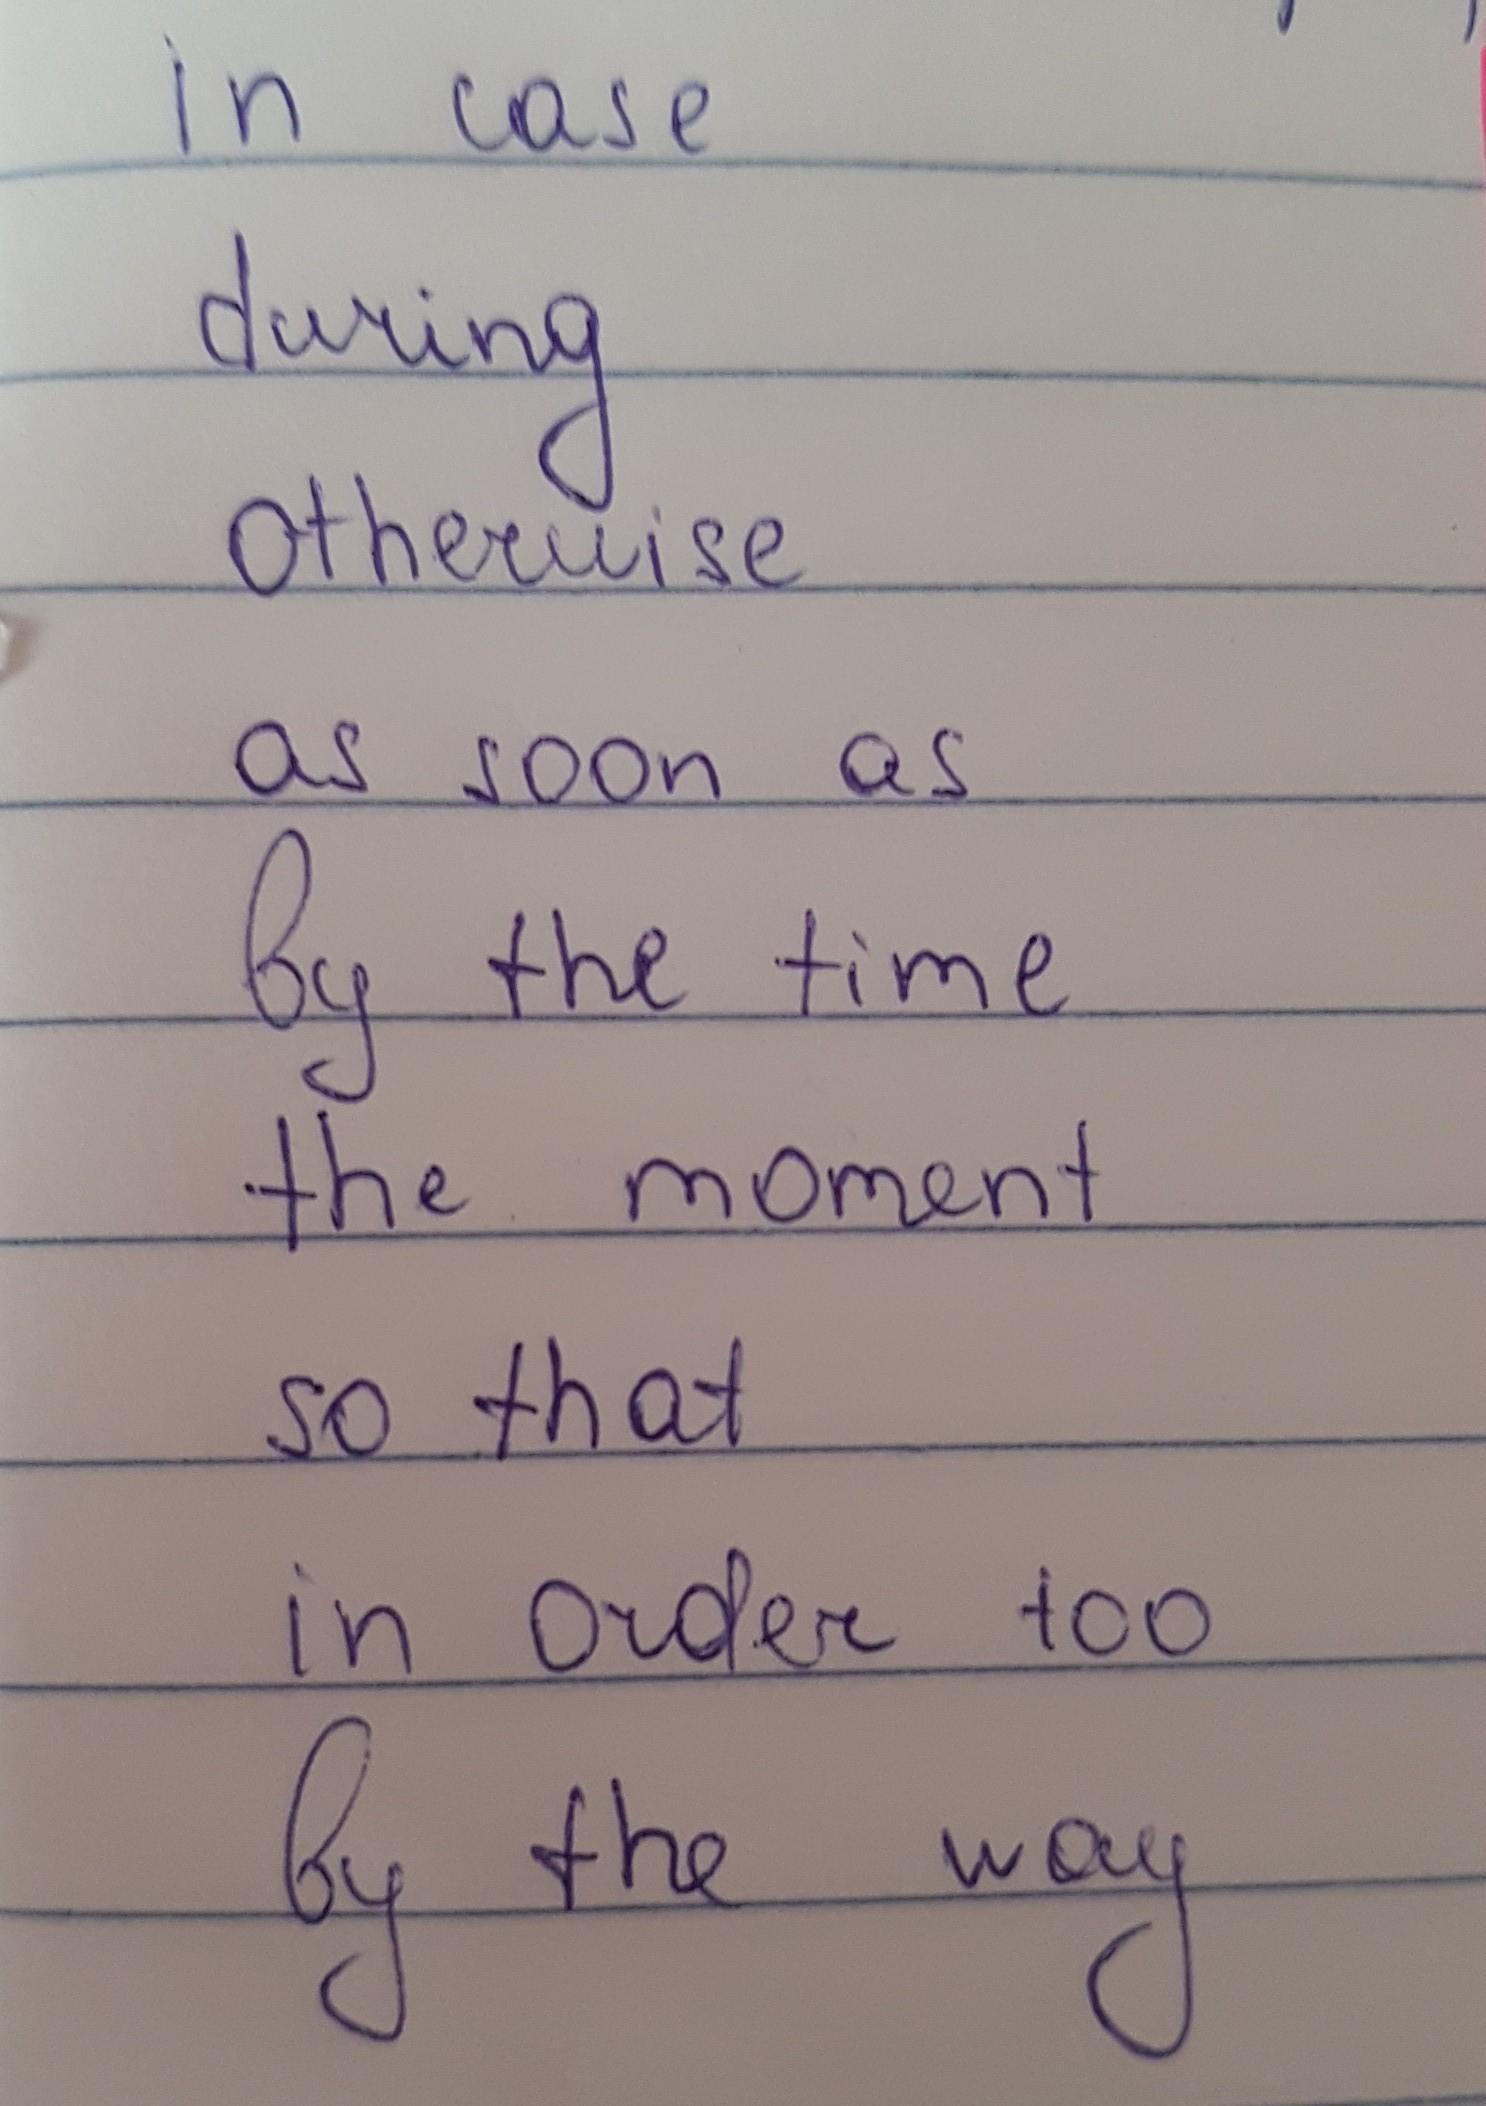 in case
during
otherwise
as soon as
by the time
the moment
so that
in order too
by the way